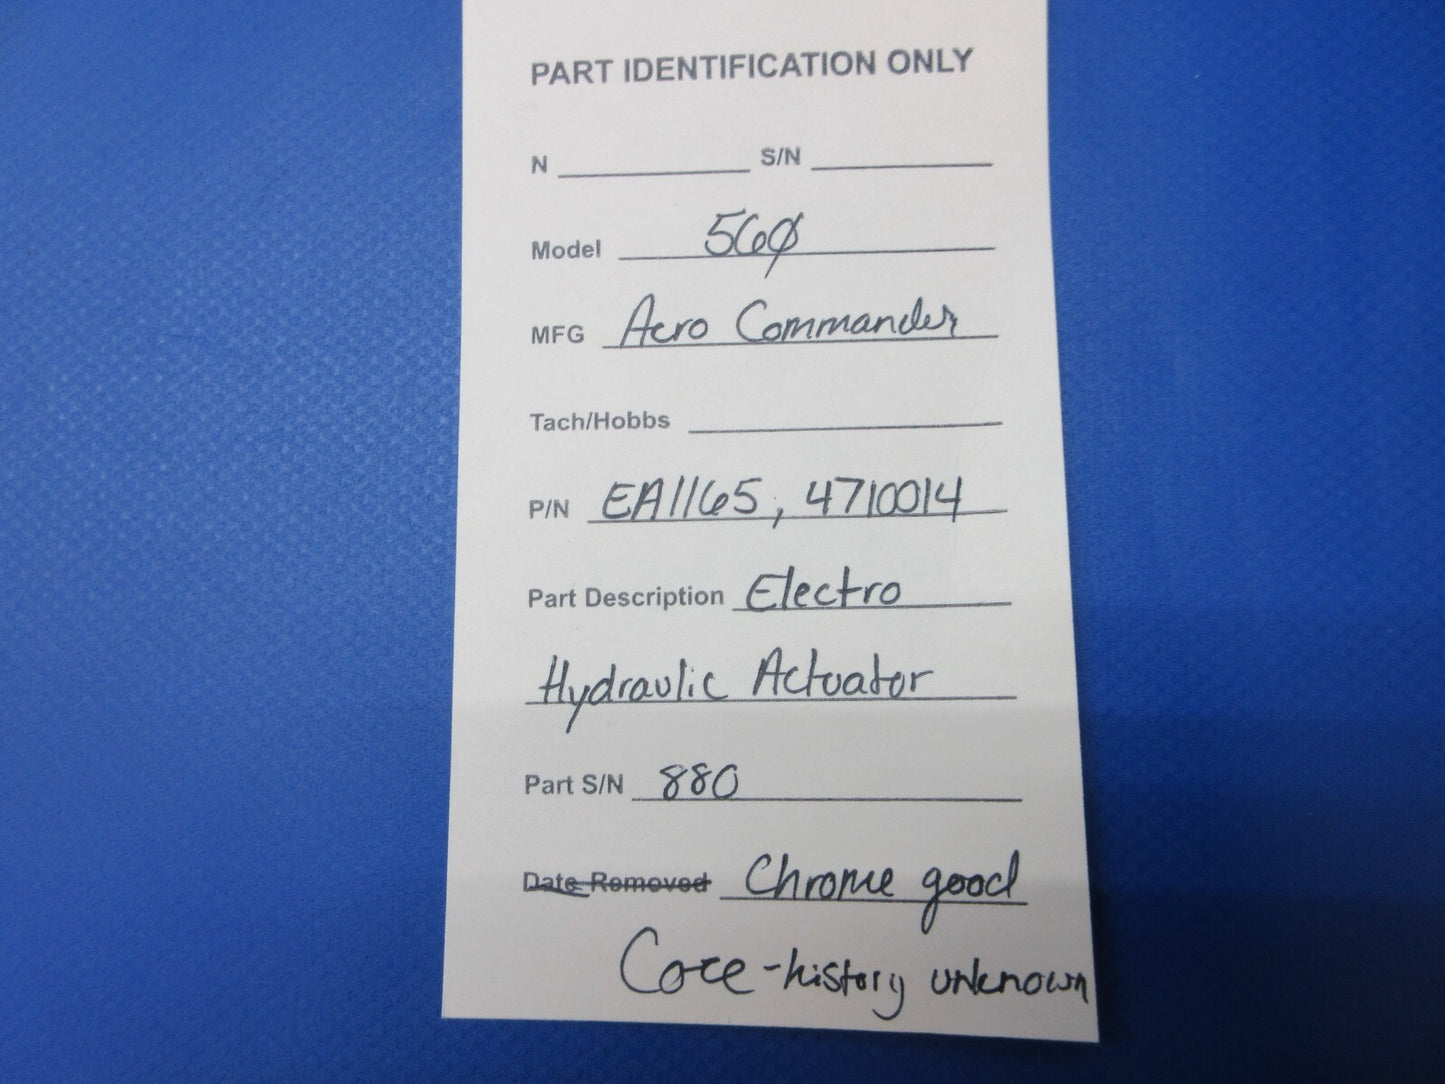 PART IDENTIFICATION ONLY
N S/N
Model 560
MFG Aero Commander
Tach/Hobbs
P/N EA1165, 4710014
Part Description Electro
Hydraulic Actuator
Part S/N 880
Date Removed Chrome good
Core - history unknown